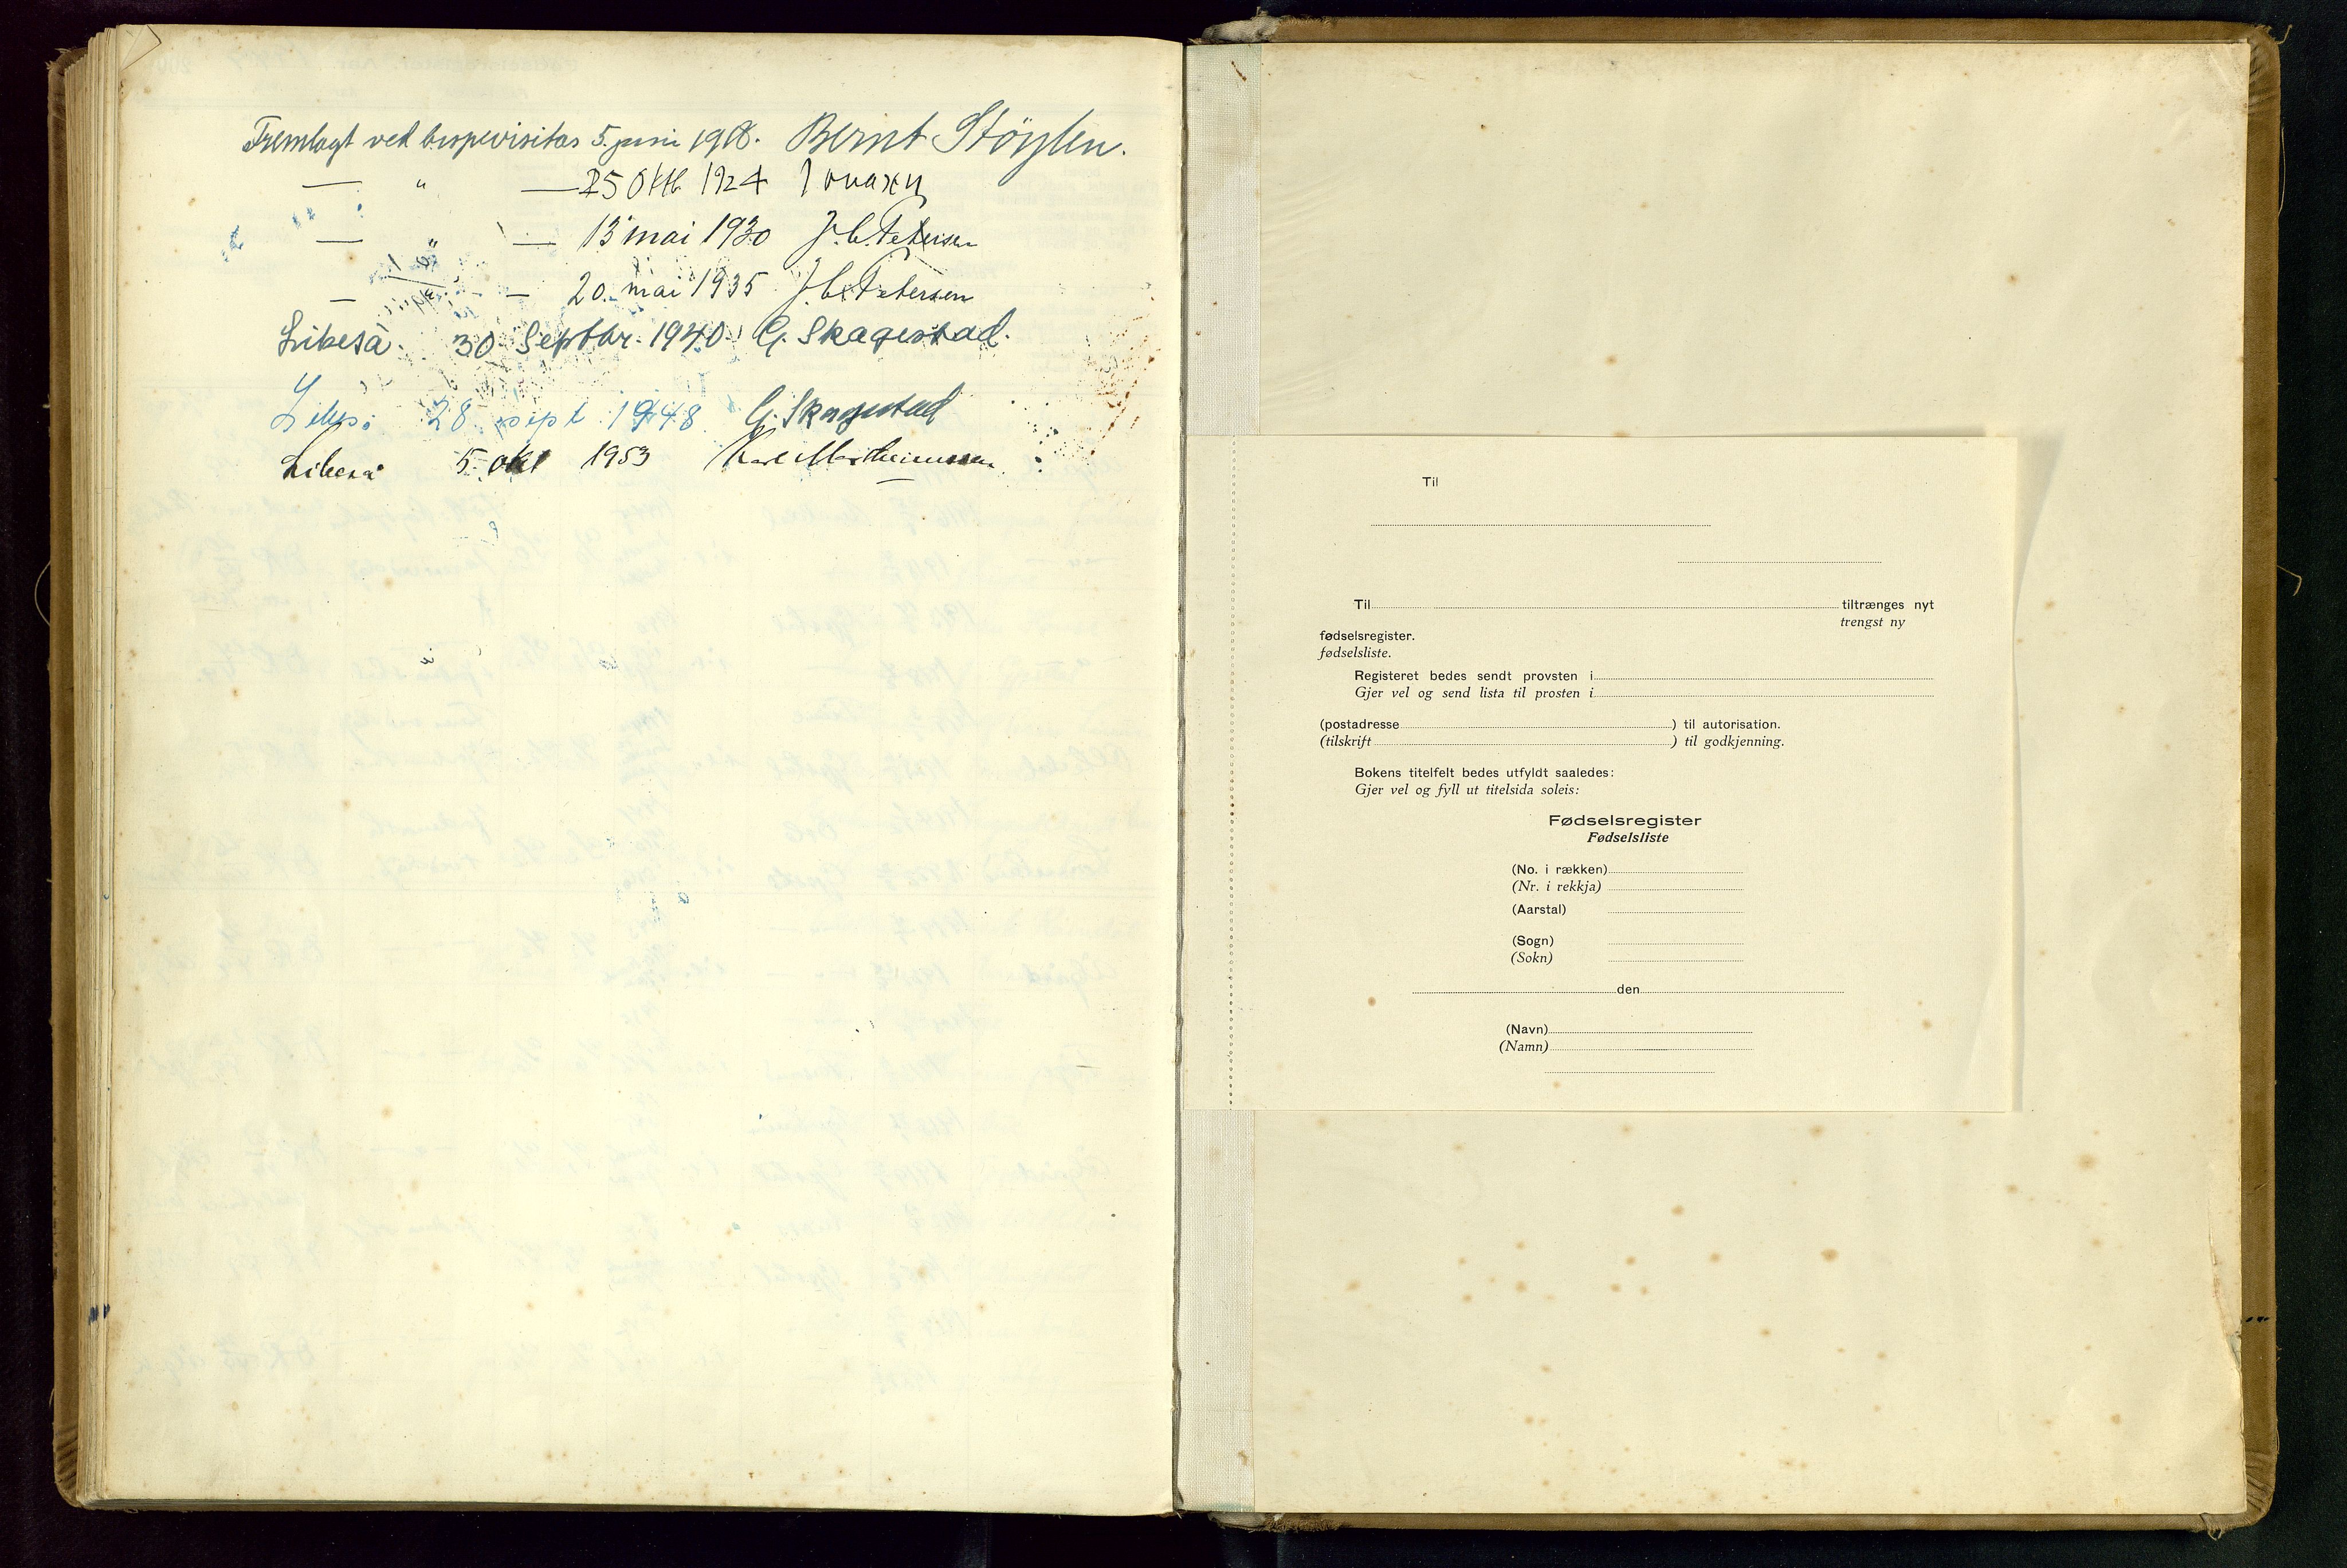 Fremlagt ved bispevisitas 5. juni 1918. Bernt Støylen.
— " — 25 Oktb 1924
— " — 13 mai 1930 J. C. Petersen
— — 20. mai 1935 J. C. Petersen
Likeså. 30 Septbr. 1940. G. Skagestad.
Likeså 28 sept 1948 G. Skagestad
Likeså 5. okt 1953 Karl Marthinussen
Til
Til tiltrænges nyt
trengst ny
fødselsregister.
fødselsliste.
Registeret bedes sendt provsten i
Gjer vel og send lista til prosten i
(postadresse ) til autorisation.
(tilskrift ) til godkjenning.
Bokens titelfelt bedes utfyldt saaledes:
Gjer vel og fyll ut titelsida soleis:
Fødselsregister
Fødselsliste
(No. i rækken)
(Nr. i rekkja)
(Aarstal)
(Sogn)
(Sokn)
den
(Navn)
(Namn)